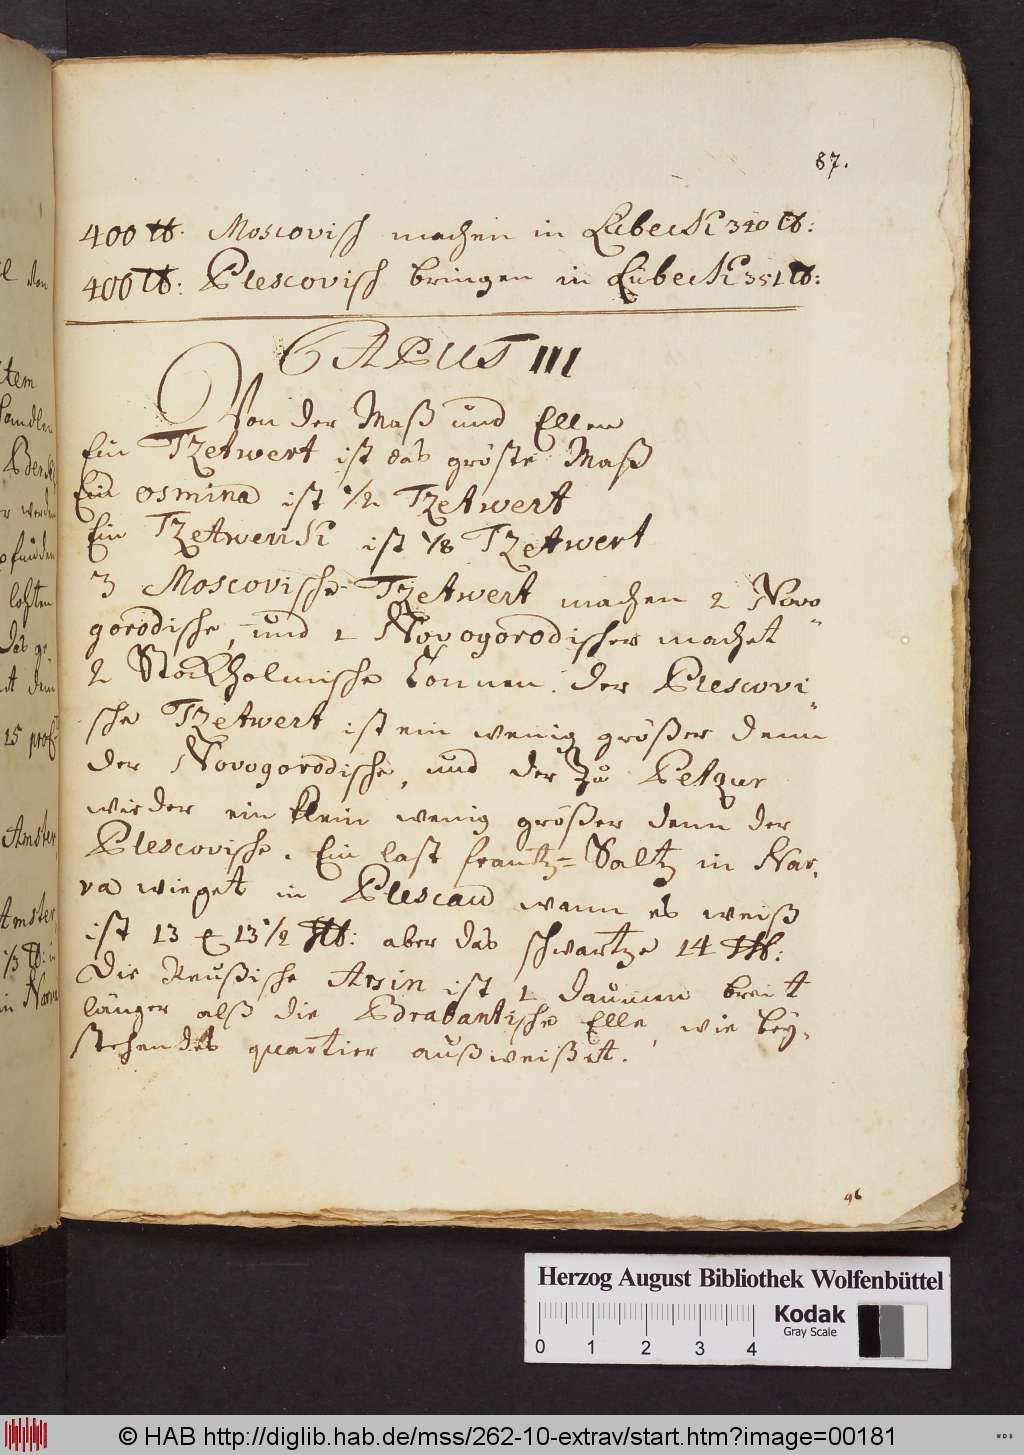 87.
400 ℔. Moscovisch machen in Lübeck 340 ℔:
400 ℔: Plescovisch bringen in Lübeck 351 ℔:
CAPUT III
Von der Maß und Ellen
Ein Tzetwert ist das gröste Maß
Ein osmina ist 1/2 Tzetwert
Ein Tzetwerick ist 1/8 Tzetwert
3 Moscovische Tzetwert machen 2 Novo
gorodische, und 1 Novogorodischer machet
2 Stockholmische Tonnen. der Plescovi
sche Tzetwert ist ein wenig größer denn
der Novogorodische, und der zu Petzur
wieder ein klein wenig größer denn der
Plescovische. Ein last frantz= Saltz in Nar,
va wieget in Plescau wann es weiß
ist 13 à 13 1/2 S℔: aber das schwartze 14 S℔:
Die Reußische Arsin ist 1 daumen breit
länger alß die Brabantische Elle, wie bey,
stehendes quartier außweißet.
46
tem
handlen
Amster,
Amster,
15
Herzog August Bibliothek Wolfenbüttel
0 1 2 3 4
Kodak
Gray Scale
© HAB http://diglib.hab.de/mss/262-10-extrav/start.htm?image=00181